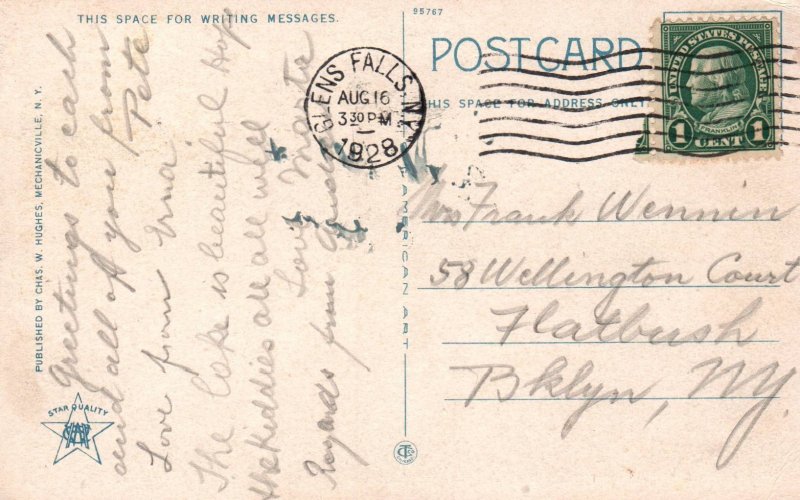 THIS SPACE FOR WRITING MESSAGES.
95767
POST CARD
THIS SPACE FOR ADDRESS ONLY
GLENS FALLS, N.Y.
AUG 16
3 30 PM
1928
UNITED STATES POSTAGE
FRANKLIN
1 CENT 1
Greetings to each
and all of you from
Pete
Love from Erna
The Lake is beautiful Hope
the kiddies are all well
Love
Regards from
Mrs Frank Wennin
58 Wellington Court
Flatbush
Bklyn, NY.
PUBLISHED BY CHAS. W. HUGHES, MECHANICVILLE, N. Y.
STAR QUALITY
AMERICAN ART